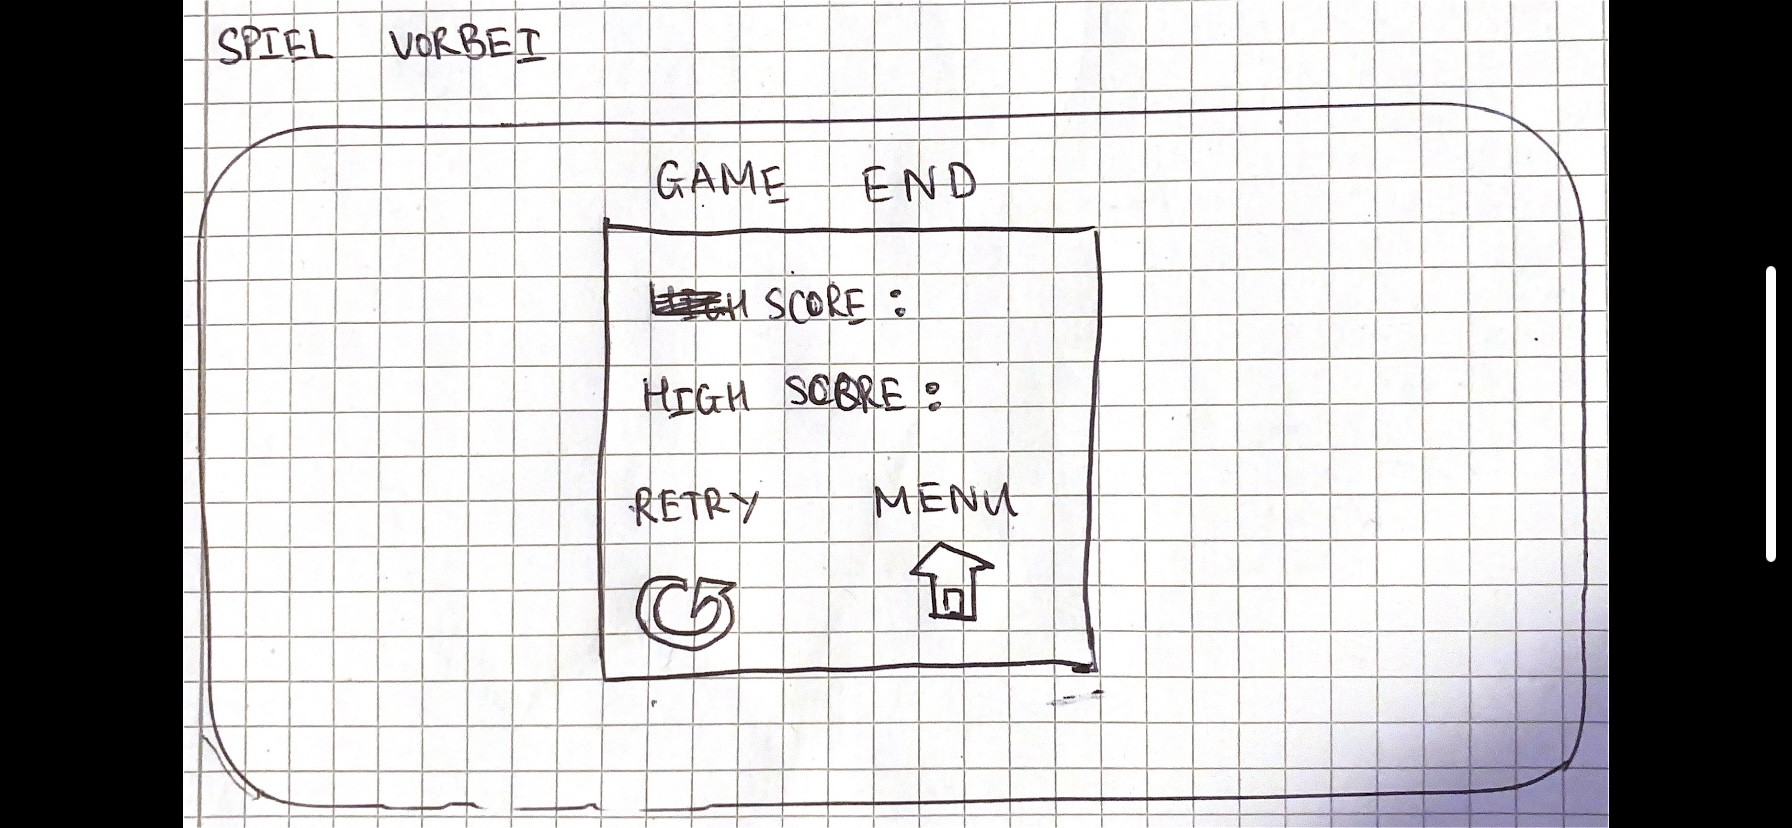 SPIEL VORBEI
GAME END
SCORE :
HIGH SCORE :
RETRY MENU